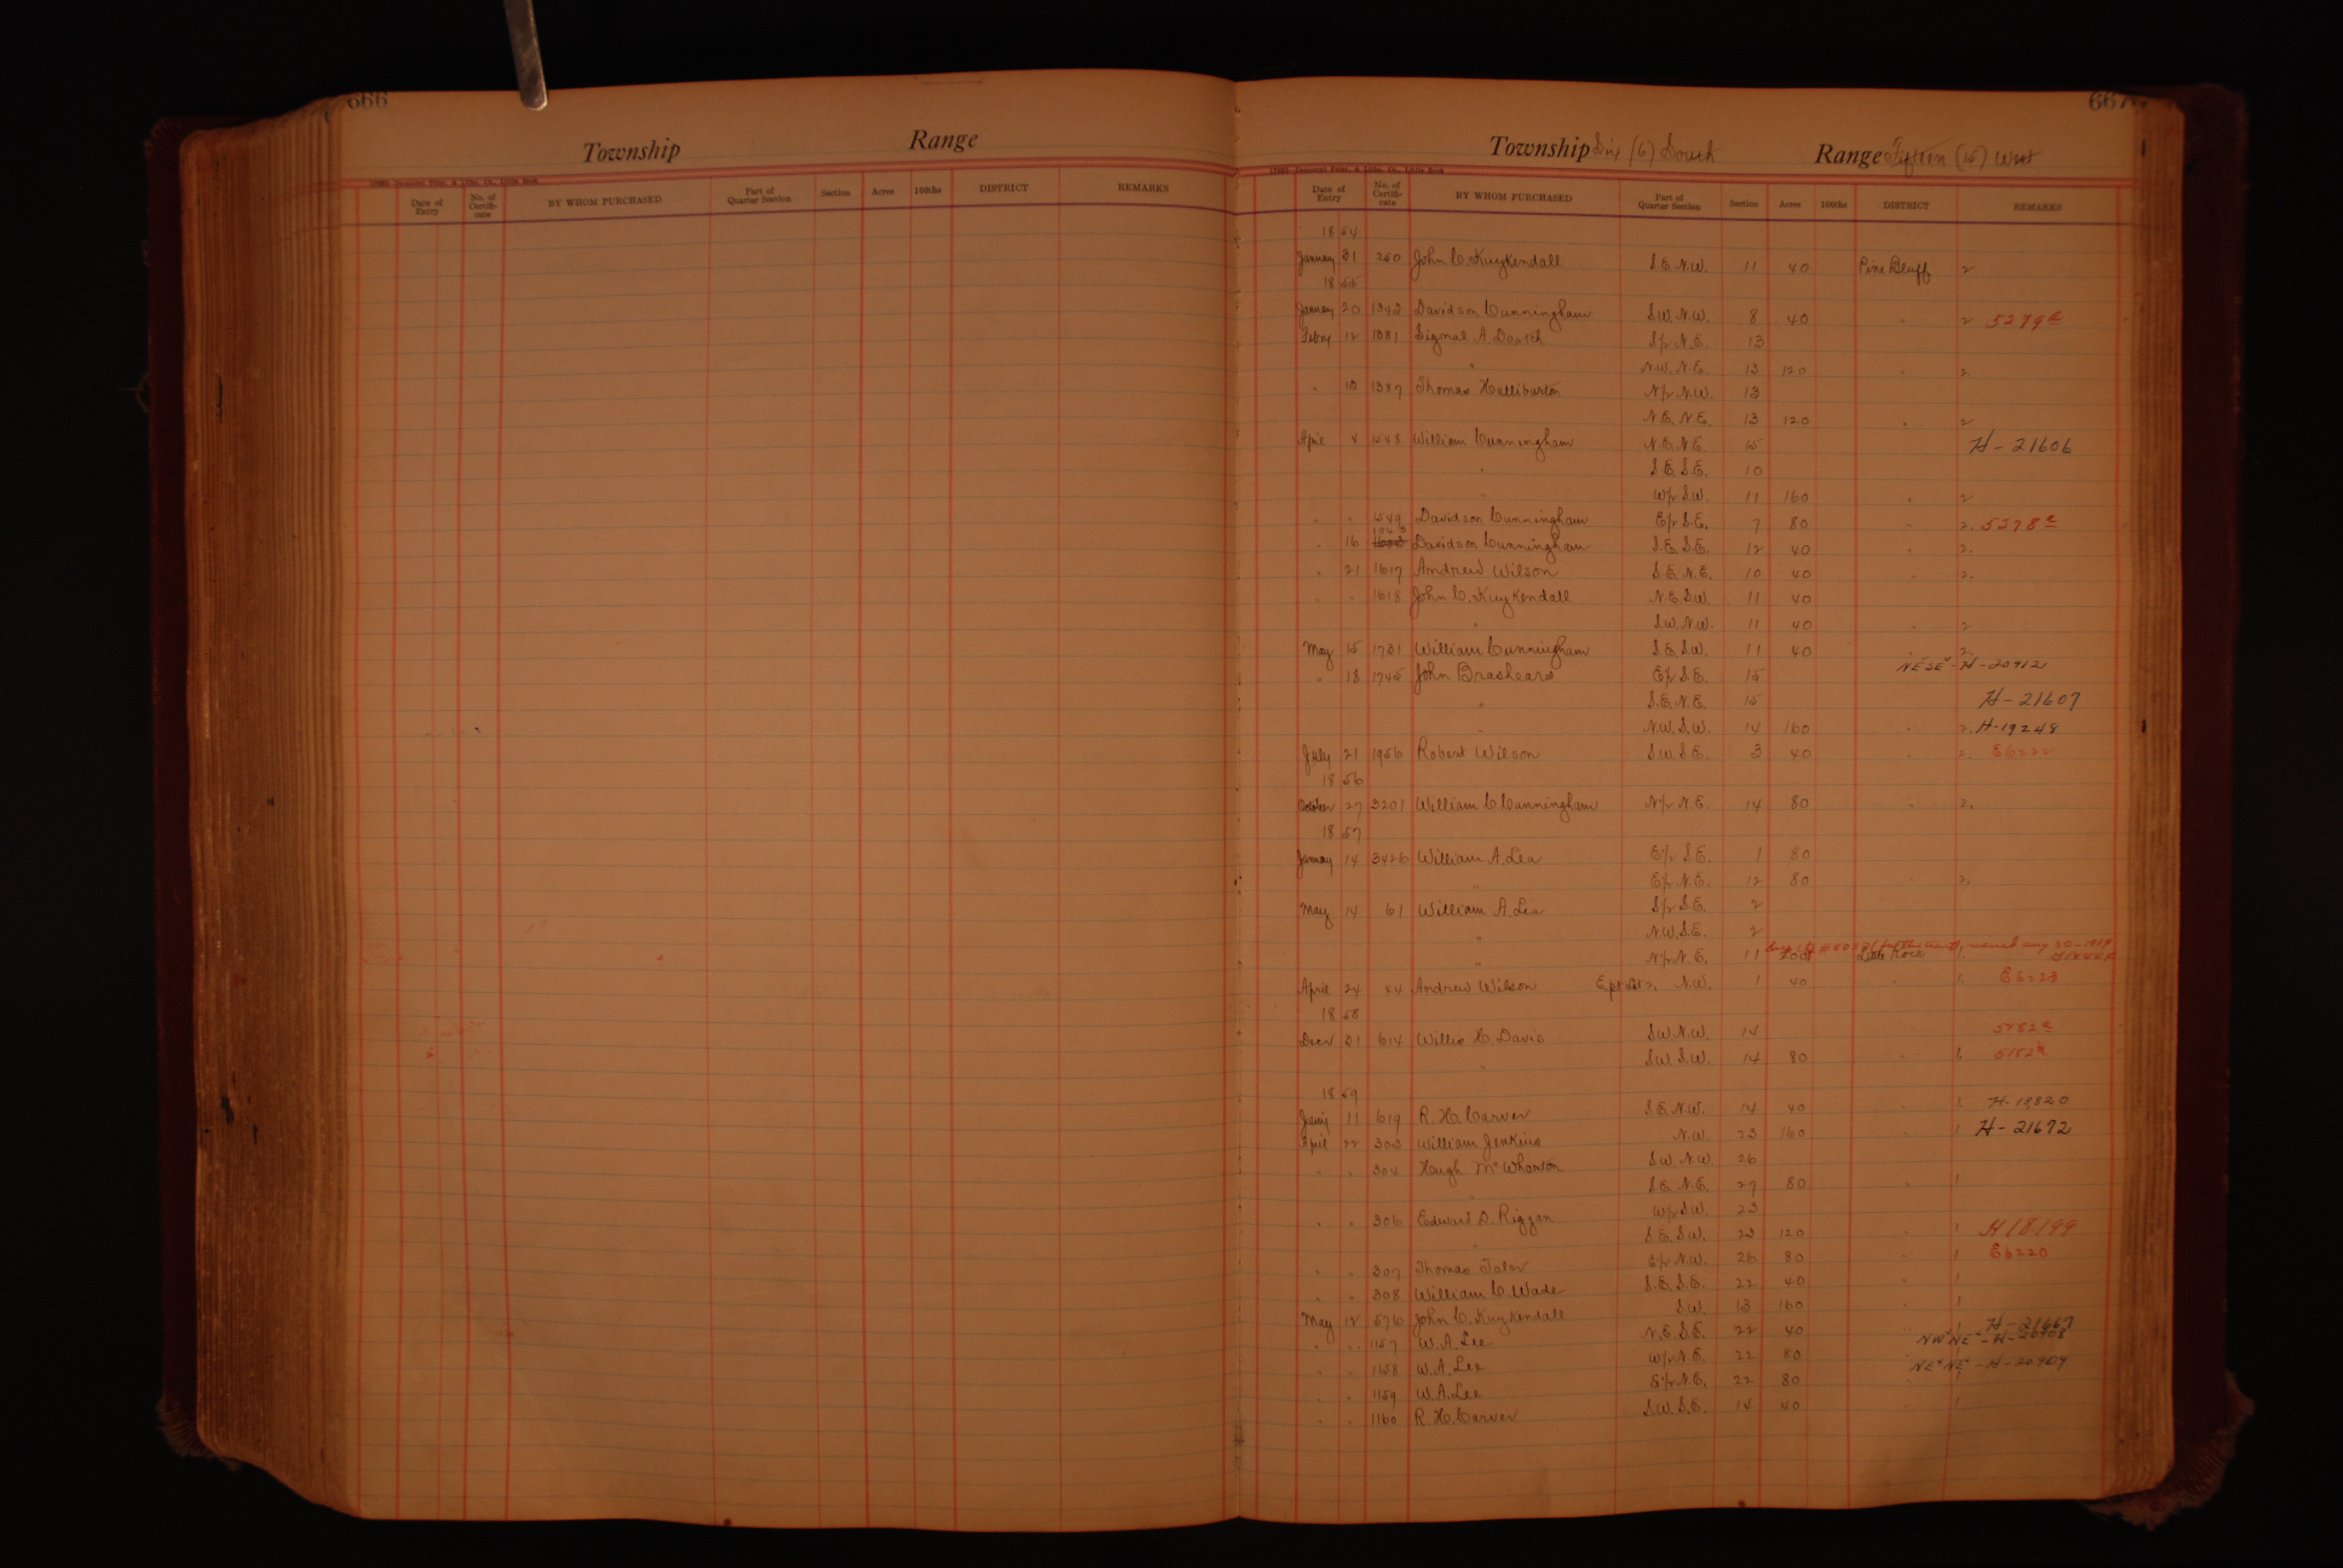 666
Township Range
Date of Entry No. of Certificate BY WHOM PURCHASED Part of Quarter Section Section Acres 100ths DISTRICT REMARKS
667
Township Six (6) South Range Fifteen (15) West
Date of Entry No. of Certificate BY WHOM PURCHASED Part of Quarter Section Section Acres 100ths DISTRICT REMARKS
1854
January 31 250 John C. Kuykendall S.E. N.W. 11 40 Pine Bluff 2
1855
January 20 1343 Davidson Cunningham S.W. N.W. 8 40 " 2 5279
Febry 12 1381 A. Dortch S/2 N.E. 13
" N.W. N.E. 13 120 " 2.
" 13 1387 Thomas Halliburton N/2 N.W. 13
N.E. N.E. 13 120 " 2
April 4 1548 William Cunningham N.E. N.E. 15 H-21606
" S.E. S.E. 10
" W/2 S.W. 11 160 " 2
" " 1549 Davidson Cunningham E/2 S.E. 7 80 " 2. 5278
" 16 Davidson Cunningham S.E. S.E. 12 40 " 2.
" 21 1617 Andrew Wilson S.E. N.E. 10 40 " 2.
" " 1618 John C. Kuykendall N.E. S.W. 11 40
" S.W. N.W. 11 40 " 2
May 15 1731 William Cunningham S.E. S.W. 11 40 " 2.
" 18 1745 John Brashears E/2 S.E. 15 NE SE - H-20912
" S.E. N.E. 15 H-21607
" N.W. S.W. 14 160 " 2. H-19248
July 21 1956 Robert Wilson S.W. S.E. 3 40 " 2. E6222
1856
October 27 3201 William C. Cunningham N/2 N.E. 14 80 " 2.
1857
January 14 3426 William A. Lea E/2 S.E. 1 80
" E/2 N.E. 12 80 " 2.
May 14 61 William A. Lea S/2 S.E. 2
" N.W. S.E. 2
" N/2 N.E. 11 200 Little Rock 1.
April 24 44 Andrew Wilson E. pt Lot 2. N.W. 1 40 " 1. E6223
1858
Decr 31 614 Willis H. Davis S.W. N.W. 14
" S.W. S.W. 14 80 " 1.
1859
11 619 R. H. Carver S.E. N.W. 14 40 " 1. H-18820
April 22 303 William Jenkins N.W. 23 160 " 1 H-21672
" " 304 Hough McWhorton S.W. N.W. 26
" S.E. N.E. 27 80 " 1
" " 306 Edward D. Riggan W/2 S.W. 23
" S.E. S.W. 23 120 " 1 H18199
" " 307 Thomas E/2 N.W. 26 80 " 1 E6220
" " 308 William C. Wade S.E. S.E. 22 40 " 1
May 12 576 John C. Kuykendall S.W. 13 160 " 1
" " 1157 W. A. Lee N.E. S.E. 22 40 " 1 H-21667
" " 1158 W. A. Lee W/2 N.E. 22 80 NW NE - H-20908
" " 1159 W. A. Lee E/2 N.E. 22 80 NE NE - H-20909
" " 1160 R. H. Carver S.W. S.E. 14 40 " 1